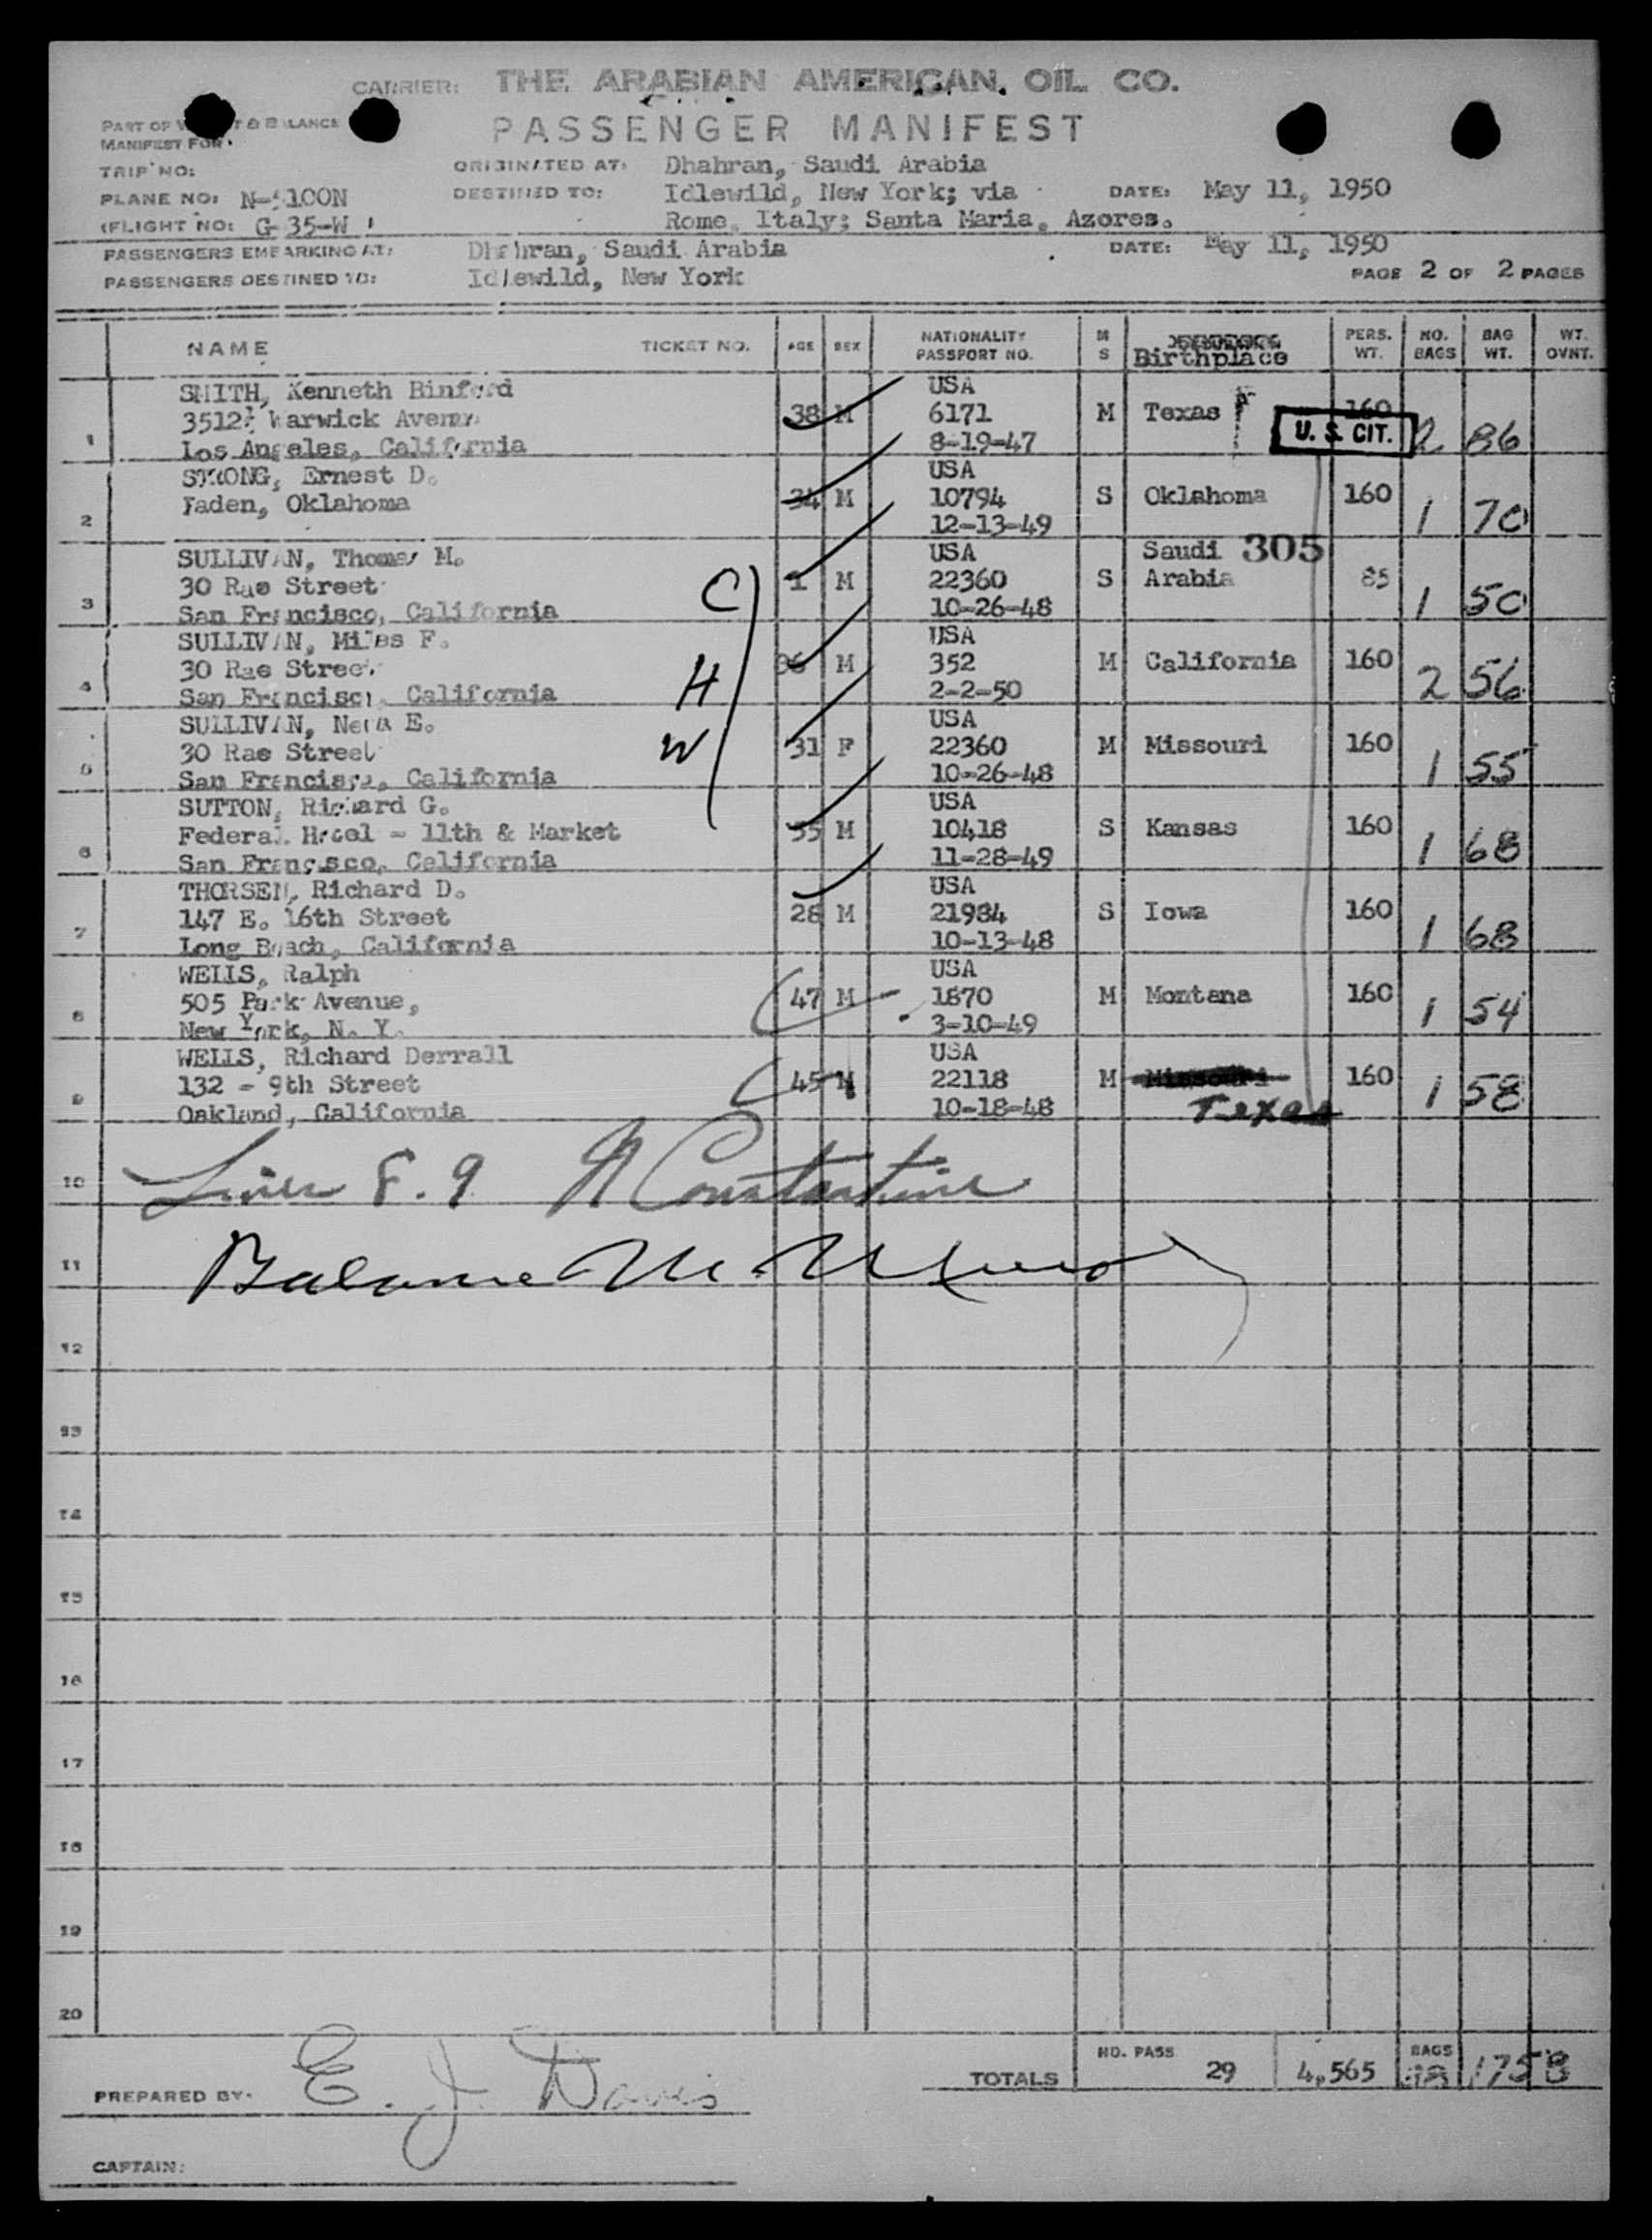 CARRIER: THE ARABIAN AMERICAN OIL CO.
PASSENGER MANIFEST
PART OF & BALANCE
MANIFEST FOR
TRIP NO:
ORIGINATED AT: Dhahran, Saudi Arabia
PLANE NO: DESTINED TO: Idlewild, New York; via DATE: May 11, 1950
FLIGHT NO: G-35-W Rome, Italy; Santa Maria, Azores.
PASSENGERS EMBARKING AT: Dhahran, Saudi Arabia DATE: May 11, 1950
PASSENGERS DESTINED TO: Idlewild, New York PAGE 2 OF 2 PAGES
NAME TICKET NO. AGE SEX NATIONALITY PASSPORT NO. M S Birthplace PERS. WT. NO. BAGS BAG WT. WT. OVNT.
SMITH, Kenneth Binford USA
1 3512½ Warwick Avenue 38 M 6171 M Texas 160 U. S. CIT. 2 86
Los Angeles, California 8-19-47
STRONG, Ernest D. USA
2 Faden, Oklahoma 34 M 10794 S Oklahoma 160 1 70
12-13-49
SULLIVAN, Thomas M. USA Saudi 305
3 30 Rae Street C 1 M 22360 S Arabia 85 1 50
San Francisco, California 10-26-48
SULLIVAN, Miles F. USA
4 30 Rae Street H 36 M 352 M California 160 2 56
San Francisco, California 2-2-50
SULLIVAN, Neva E. USA
5 30 Rae Street W 31 F 22360 M Missouri 160 1 55
San Francisco, California 10-26-48
SUTTON, Richard G. USA
6 Federal Hotel - 11th & Market 35 M 10418 S Kansas 160 1 68
San Francisco, California 11-28-49
THORSEN, Richard D. USA
7 147 E. 16th Street 28 M 21984 S Iowa 160 1 68
Long Beach, California 10-13-48
WELLS, Ralph USA
8 505 Park Avenue, 47 M 1870 M Montana 160 1 54
New York, N. Y. 3-10-49
WELLS, Richard Derrall USA
9 132 - 9th Street 45 M 22118 M Missouri 160 1 58
Oakland, California 10-18-48 Texas
10 Lines 8. 9 Constantine
11 Balance
12
13
14
15
16
17
18
19
20
TOTALS NO. PASS 29 4,565 BAGS 1758
PREPARED BY: E. J. Davis
CAPTAIN: